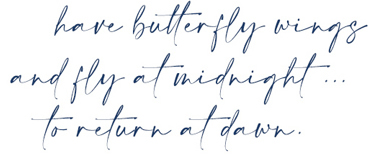 have butterfly wings
and fly at midnight ...
to return at dawn.